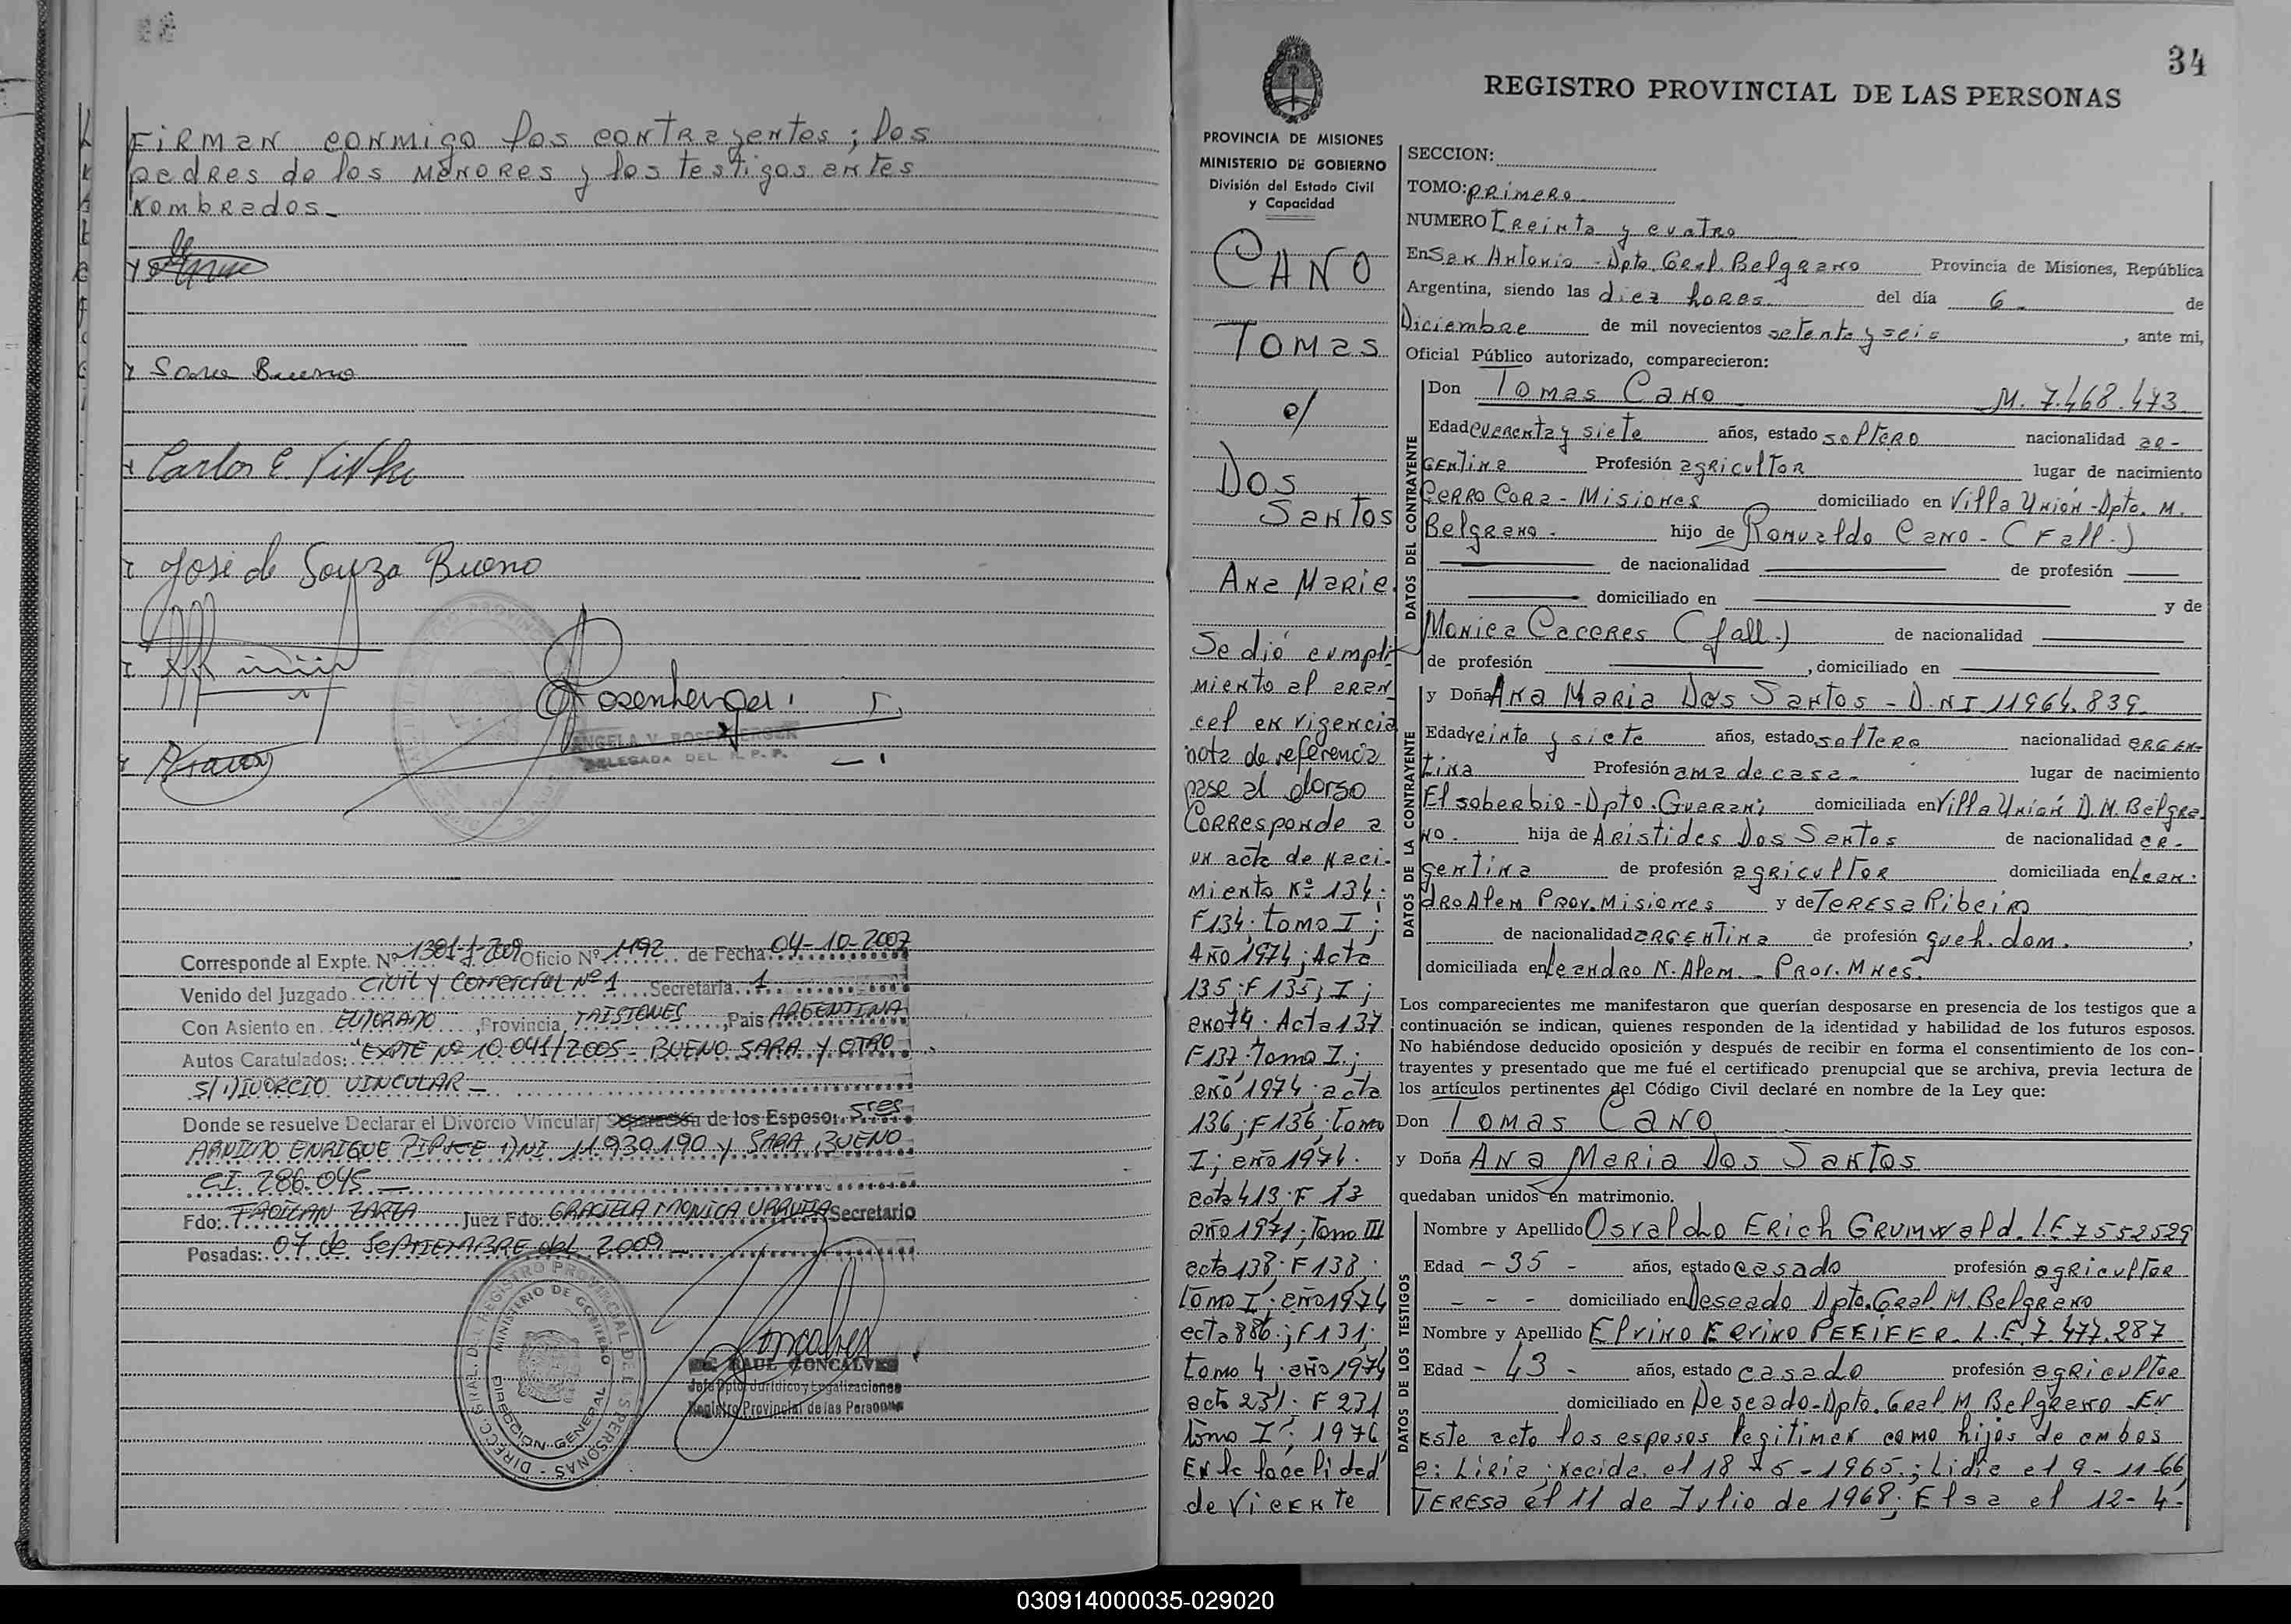 Firman conmigo los contrayentes; los
padres de los menores y los testigos antes
nombrados.-
Sara Bueno
Carlos E.
José de Souza Bueno
Rosenberger
ANGELA V. ROSENBERGER
DELEGADA DEL R. P. P.
Corresponde al Expte. Nº Oficio Nº 1192 de Fecha 04-10-2007
Venido del Juzgado Civil y Comercial Nº 1 Secretaria 1
Con Asiento en ELDORADO, Provincia MISIONES, Pais ARGENTINA
Autos Caratulados: "EXPTE Nº 10.041/2005 - BUENO SARA Y OTRO
S/ DIVORCIO VINCULAR -
Donde se resuelve Declarar el Divorcio Vincular/ Separación de los Esposo: Sres
ARNILDO ENRIQUE DNI 11.930.190 y SARA BUENO
CI. 286.045 -
Fdo: Juez Fdo: GRACIELA MONICA Secretario
Posadas: 07 de SEPTIEMBRE del 2009
DIRECC. GRAL. DEL REGISTRO PROVINCIAL DE LAS PERSONAS
MINISTERIO DE GOBIERNO
DIRECCION GENERAL
RAUL GONCALVES
Jefe Dpto. Jurídico y Legalizaciones
Registro Provincial de las Personas
34
REGISTRO PROVINCIAL DE LAS PERSONAS
PROVINCIA DE MISIONES
MINISTERIO DE GOBIERNO
División del Estado Civil
y Capacidad
CANO
Tomas
c/
Dos
Santos
Ana Maria
Se dió cumpli-
miento al aran-
cel en vigencia
nota de referencia
pase al dorso
Corresponde a
un acta de naci-
miento Nº 134;
F134. tomo I;
Año 1974; Acta
135: F 135; I;
año 74. Acta 137
F137: Tomo I.;
año 1974; acta
136; F 136; tomo
I; año 1974.
acta 413. F 13
año 1971; Tomo III
acta 138; F 138.
tomo I; año 1974
acta 886; F 131;
tomo 4; año 1974
acta 231. F 231
tomo Iº; 1976
En la localidad
de Vicente
SECCION:
TOMO: primero
NUMERO Treinta y cuatro
En San Antonio - Dpto. Gral. Belgrano Provincia de Misiones, República
Argentina, siendo las diez horas del día 6 de
Diciembre de mil novecientos setenta y seis, ante mi,
Oficial Público autorizado, comparecieron:
DATOS DEL CONTRAYENTE
Don Tomas Cano M. 7.468.473
Edad cuarenta y siete años, estado soltero nacionalidad ar-
gentina Profesión agricultor lugar de nacimiento
Cerro Cora - Misiones domiciliado en Villa Unión - Dpto. M.
Belgrano. hijo de Romualdo Cano - (Fall.)
de nacionalidad de profesión
domiciliado en y de
Monica Caceres (fall.) de nacionalidad
de profesión , domiciliado en
DATOS DE LA CONTRAYENTE
y Doña Ana Maria Dos Santos - D.N.I 11964.839-
Edad veinte y siete años, estado soltera nacionalidad argen-
tina Profesión ama de casa - lugar de nacimiento
El soberbio - Dpto. Guarani; domiciliada en Villa Unión D. M. Belgra
no. hija de Aristides Dos Santos de nacionalidad ar-
gentina de profesión agricultor domiciliada en Lean-
dro Alem Prov. Misiones y de Teresa Ribeiro
de nacionalidad argentina de profesión queh. dom.,
domiciliada en Leandro N. Alem. - Prov. Mnes.
Los comparecientes me manifestaron que querían desposarse en presencia de los testigos que a
continuación se indican, quienes responden de la identidad y habilidad de los futuros esposos.
No habiéndose deducido oposición y después de recibir en forma el consentimiento de los con-
trayentes y presentado que me fué el certificado prenupcial que se archiva, previa lectura de
los artículos pertinentes del Código Civil declaré en nombre de la Ley que:
Don Tomas Cano
y Doña Ana Maria Dos Santos
quedaban unidos en matrimonio.
DATOS DE LOS TESTIGOS
Nombre y Apellido Osvaldo Erich Grumwald. L.E. 7552529
Edad - 35 - años, estado casado profesión agricultor
- - - domiciliado en Deseado Dpto. Gral. M. Belgrano
Nombre y Apellido Elvino Ervino PFEIFER. L.E. 7.477.287
Edad - 43 - años, estado casado profesión agricultor
domiciliado en Deseado - Dpto. Gral M. Belgrano - En
este acto los esposos legitiman como hijos de ambos
a: Liria; nacida el 18-5-1965.; Lidia el 9-11-66
Teresa el 11 de Julio de 1968; Elsa el 12-4-
030914000035-029020